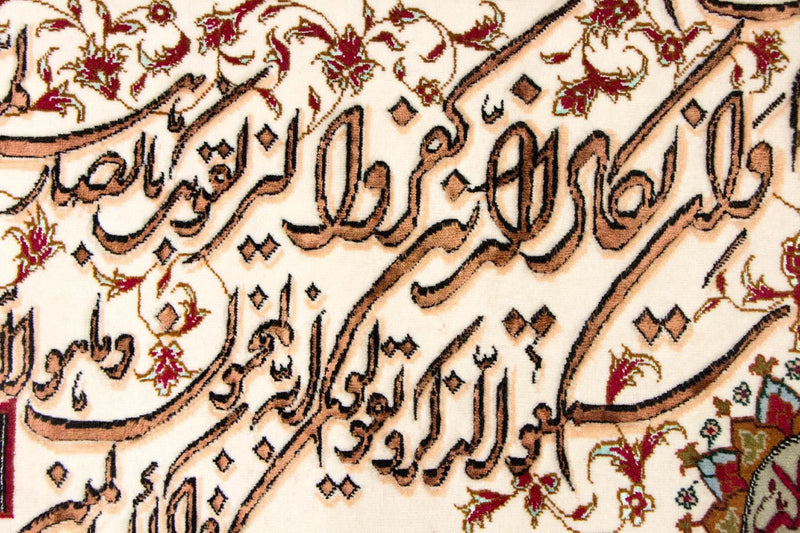 وان یکاد الذین کفروا لیزلقونک بابصار
سمعوا الذکر و یقولون انه لمجنون و ما هو الا